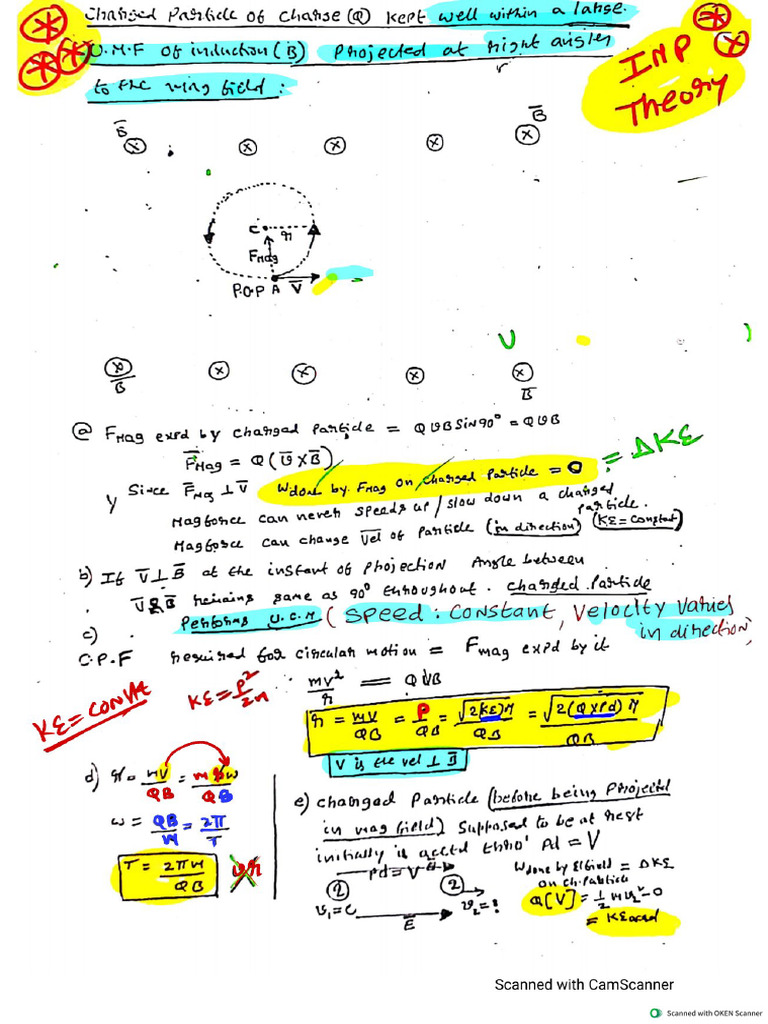 Charged Particle of Charge (Q) kept well within a large
U.M.F of induction (B) Projected at right angles
to the mag field:
IMP
Theory
B̄ ⊗ ⊗ ⊗ ⊗ ⊗ B̄
C r
FMag
P.O.P A V̄
⊗ ⊗ ⊗ ⊗ ⊗
B̄ B̄
ⓐ FMag expd by charged Particle = QVBSin90° = QVB
F̄Mag = Q(V̄×B̄)
Since F̄Mag ⊥ V̄ Wdone by FMag on charged Particle = 0 = ΔKE
Magforce can never speeds up / slow down a charged Particle.
Magforce can change Vel of Particle (in direction) (KE = constant)
b) If V̄⊥B̄ at the instant of projection Angle between
V̄ & B̄ remains same as 90° throughout. Charged Particle
Performs U.C.M (Speed: Constant, Velocity varies
in direction)
c)
C.P.F required for circular motion = Fmag expd by it
mv²/r = QVB
KE = Const
KE = P²/2m
r = mV/QB = P/QB = √2(KE)m/QB = √2(Q×Pd)m/QB
V is the vel ⊥ B̄
d) r = mV/QB = mrω/QB
ω = QB/m = 2π/T
T = 2πm/QB
e) Charged Particle (before being Projected
in mag field) Supposed to be at rest
initially is accltd thro' Pd = V
Pd = V
Wdone by Efield = ΔKE
on Ch. Particle
Q[V] = ½mv₂² - 0
= KEaccrd
v₂ = ?
E̅
Scanned with CamScanner
Scanned with OKEN Scanner